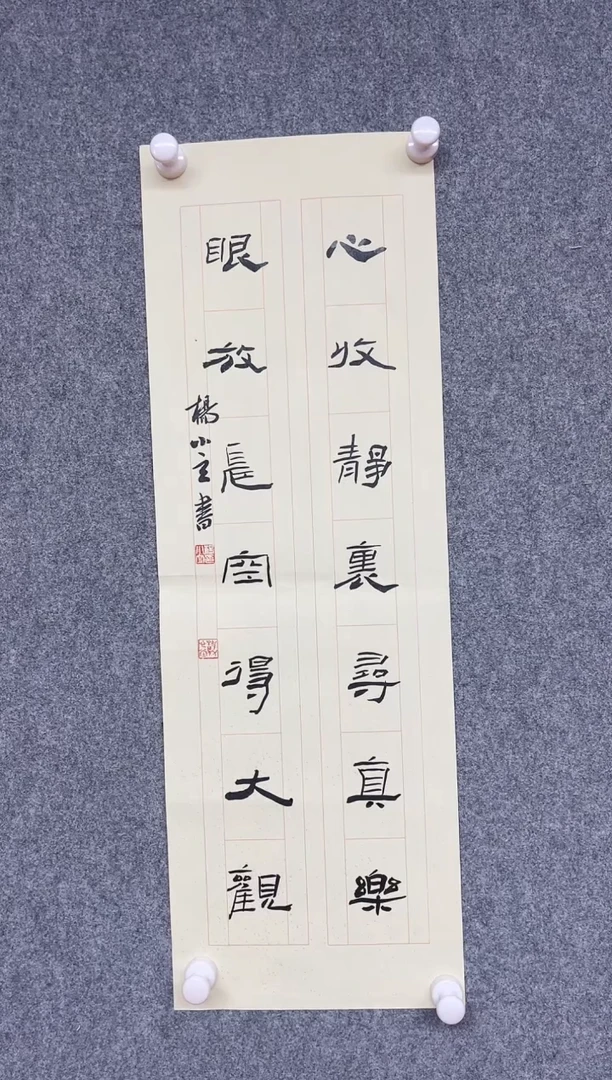 心收靜裏尋真樂
眼放長空得大觀
楊小立書